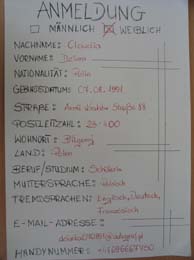 ANMELDUNG
MÄNNLICH WEIBLICH
NACHNAME: Claudia
VORNAME:
NATIONALITÄT: Polin
GEBURTSDATUM: 07.08.1991
STRAßE: Straße 88
POSTLEITZAHL: 23-400
WOHNORT: Biłgoraj
LAND: Polen
BERUF/STUDIUM: Schülerin
MUTTERSPRACHE: Polnisch
FREMDSPRACHEN: Englisch, Deutsch,
Französisch
E-MAIL-ADRESSE:
HANDYNUMMER: